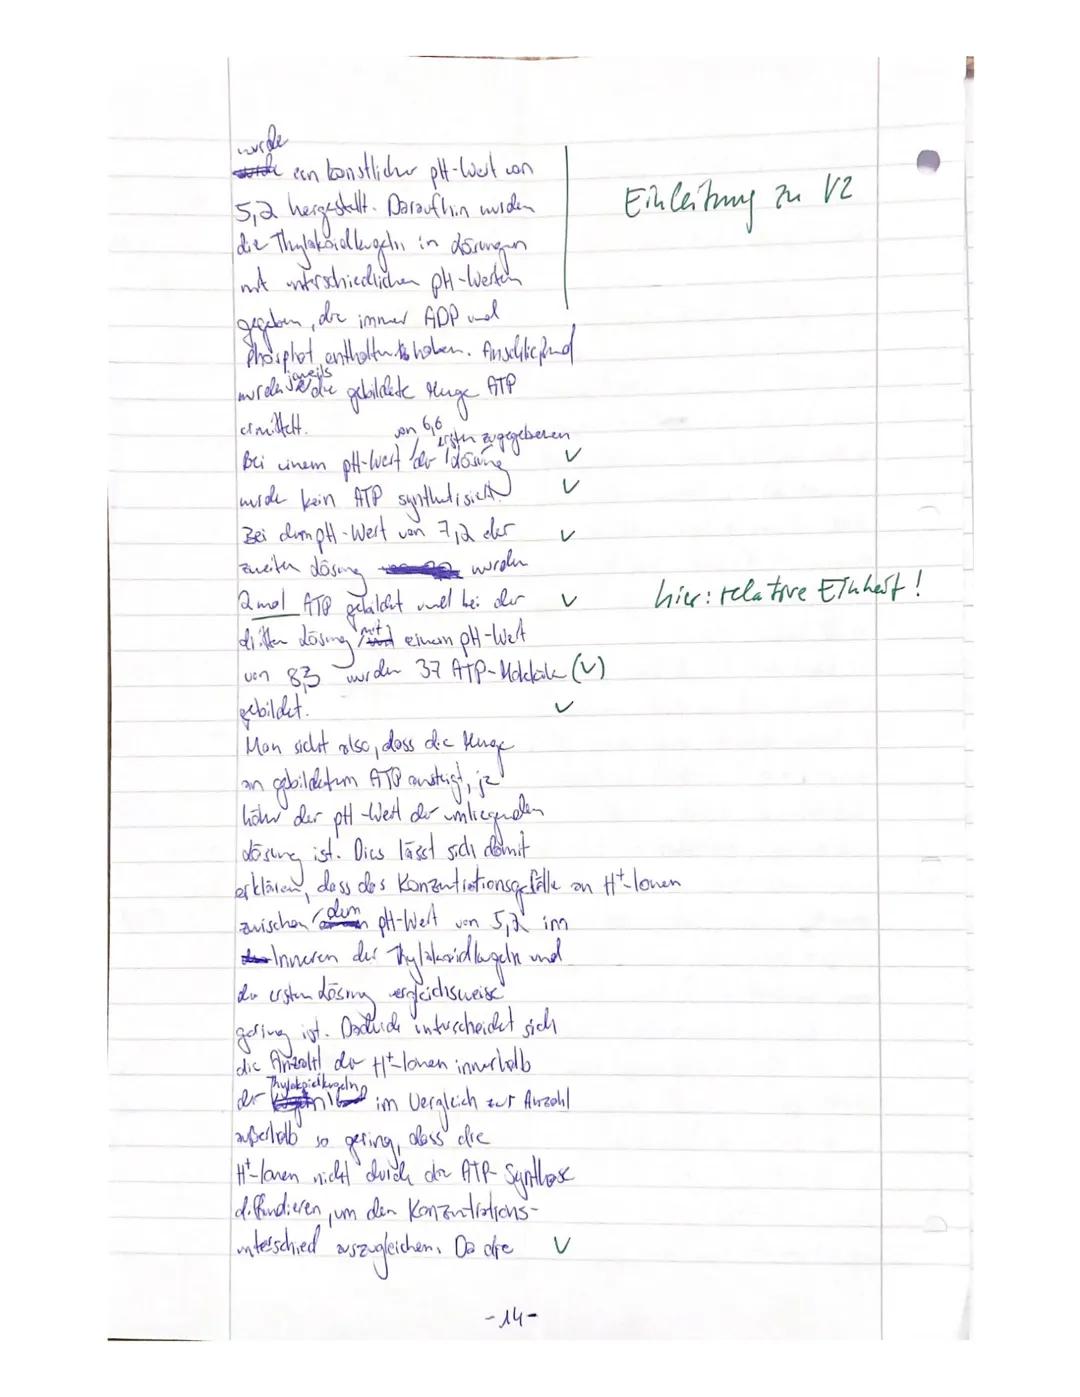 wurde
ein künstlicher pH-Wert von
5,2 hergestellt. Daraufhin wurden
Einleitung zu V2
die Thylakoidkugeln in Lösungen
mit unterschiedlichen pH-Werten
gegeben, die immer ADP und
Phosphat enthalten haben. Anschließend
wurden jeweils die gebildete Menge ATP
ermittelt.
von 6,6 ersten zugegebenen
Bei einem pH-Wert der Lösung
wurde kein ATP synthetisiert.
Bei dem pH-Wert von 7,2 der
zweiten Lösung wurden
2 mol ATP gebildet und bei der
hier: relative Einheit!
dritten Lösung mit einem pH-Wert
von 8,3 wurden 37 ATP-Moleküle (✓)
gebildet.
Man sieht also, dass die Menge
an gebildetem ATP ansteigt, je
höher der pH-Wert der umliegenden
Lösung ist. Dies lässt sich damit
erklären, dass das Konzentrationsgefälle an H⁺-Ionen
zwischen dem pH-Wert von 5,2 im
Inneren der Thylakoidkugeln und
der ersten Lösung vergleichsweise
gering ist. Dadurch unterscheidet sich
die Anzahl der H⁺-Ionen innerhalb
der Thylakoidkugeln im Vergleich zur Anzahl
außerhalb so gering, dass die
H⁺-Ionen nicht durch die ATP-Synthase
diffundieren, um den Konzentrations-
unterschied auszugleichen. Da die
-14-